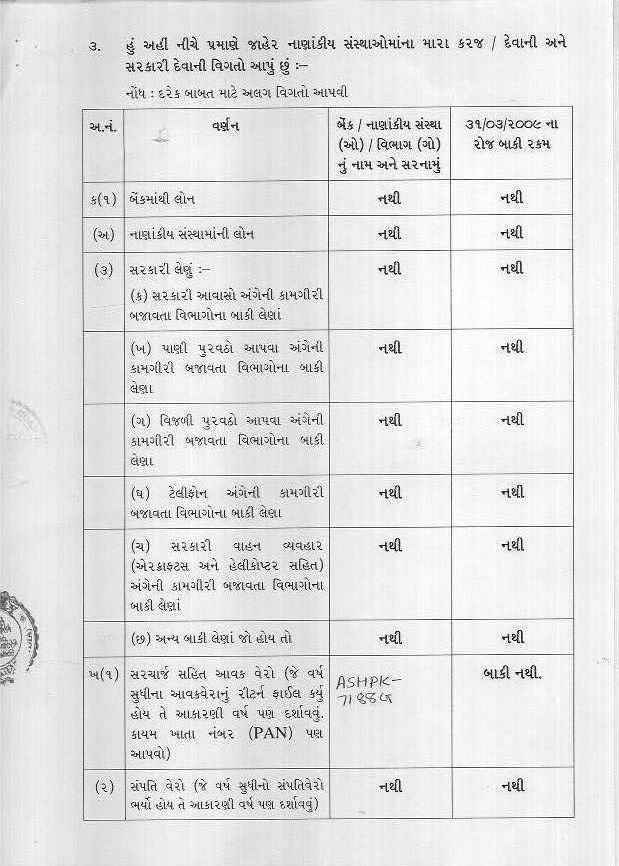 ૩. હું અહીં નીચે પ્રમાણે જાહેર નાણાંકીય સંસ્થાઓમાંના મારા કરજ / દેવાની અને
સરકારી દેવાની વિગતો આપું છું :–
નોંધ : દરેક બાબત માટે અલગ વિગતો આપવી
અ.નં. વર્ણન બેંક / નાણાંકીય સંસ્થા ૩૧/૦૩/૨૦૦૯ ના
(ઓ) / વિભાગ (ગો) રોજ બાકી રકમ
નું નામ અને સરનામું
ક(૧) બેંકમાંથી લોન નથી નથી
(અ) નાણાંકીય સંસ્થામાંની લોન નથી નથી
(૩) સરકારી લેણું :– નથી નથી
(ક) સરકારી આવાસો અંગેની કામગીરી
બજાવતા વિભાગોના બાકી લેણાં
(ખ) પાણી પુરવઠો આપવા અંગેની નથી નથી
કામગીરી બજાવતા વિભાગોના બાકી
લેણા
(ગ) વિજળી પુરવઠો આપવા અંગેની નથી નથી
કામગીરી બજાવતા વિભાગોના બાકી
લેણા
(ઘ) ટેલીફોન અંગેની કામગીરી નથી નથી
બજાવતા વિભાગોના બાકી લેણા
(ચ) સરકારી વાહન વ્યવહાર નથી નથી
(એરક્રાફ્ટસ અને હેલીકોપ્ટર સહિત)
અંગેની કામગીરી બજાવતા વિભાગોના
બાકી લેણાં
(છ) અન્ય બાકી લેણાં જો હોય તો નથી નથી
ખ(૧) સરચાર્જ સહિત આવક વેરો (જે વર્ષ ASHPK- બાકી નથી.
સુધીના આવકવેરાનું રીટર્ન ફાઈલ કર્યુ 7188G
હોય તે આકારણી વર્ષ પણ દર્શાવવું.
કાયમ ખાતા નંબર (PAN) પણ
આપવો)
(૨) સંપતિ વેરો (જે વર્ષ સુધીનો સંપતિવેરો નથી નથી
ભર્યો હોય તે આકારણી વર્ષ પણ દર્શાવવું)